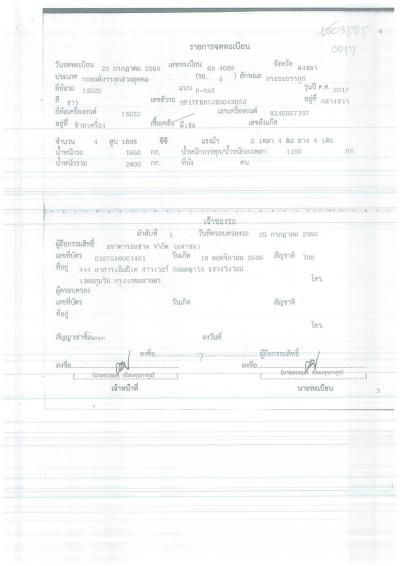 6
0017
รายการจดทะเบียน
วันจดทะเบียน 25 กรกฎาคม 2560 เลขทะเบียน 4088 จังหวัด สงขลา
ประเภท รถยนต์บรรทุกส่วนบุคคล (รย. 3 ) ลักษณะ กระบะบรรทุก
ยี่ห้อรถ ISUZU แบบ D-MAX รุ่นปี ค.ศ. 2017
สี ขาว เลขตัวรถ อยู่ที่ กลางขวา
ยี่ห้อเครื่องยนต์ ISUZU เลขเครื่องยนต์
อยู่ที่ ข้างเครื่อง เชื้อเพลิง ดีเซล เลขถังแก๊ส
จำนวน 4 สูบ 1898 ซีซี แรงม้า 2 เพลา 4 ล้อ ยาง 4 เส้น
น้ำหนักรถ 1650 กก. น้ำหนักบรรทุก/น้ำหนักลงเพลา 1150 กก.
น้ำหนักรวม 2800 กก. ที่นั่ง คน
เจ้าของรถ
ลำดับที่ 1 วันที่ครอบครองรถ 25 กรกฎาคม 2560
ผู้ถือกรรมสิทธิ์ ธนาคารธนชาต จำกัด (มหาชน)
เลขที่บัตร 0107536001401 วันเกิด 19 พฤศจิกายน 2536 สัญชาติ ไทย
ที่อยู่ 444 อาคารเอ็มบีเค ทาวเวอร์ ถนนพญาไท แขวงวังใหม่
เขตปทุมวัน กรุงเทพมหานคร โทร.
ผู้ครอบครอง
เลขที่บัตร วันเกิด สัญชาติ
ที่อยู่
โทร.
สัญญาเช่าซื้อเลขที่ ลงวันที่
ลงชื่อ ผู้ถือกรรมสิทธิ์
ลงชื่อ ลงชื่อ
เจ้าหน้าที่ นายทะเบียน
5